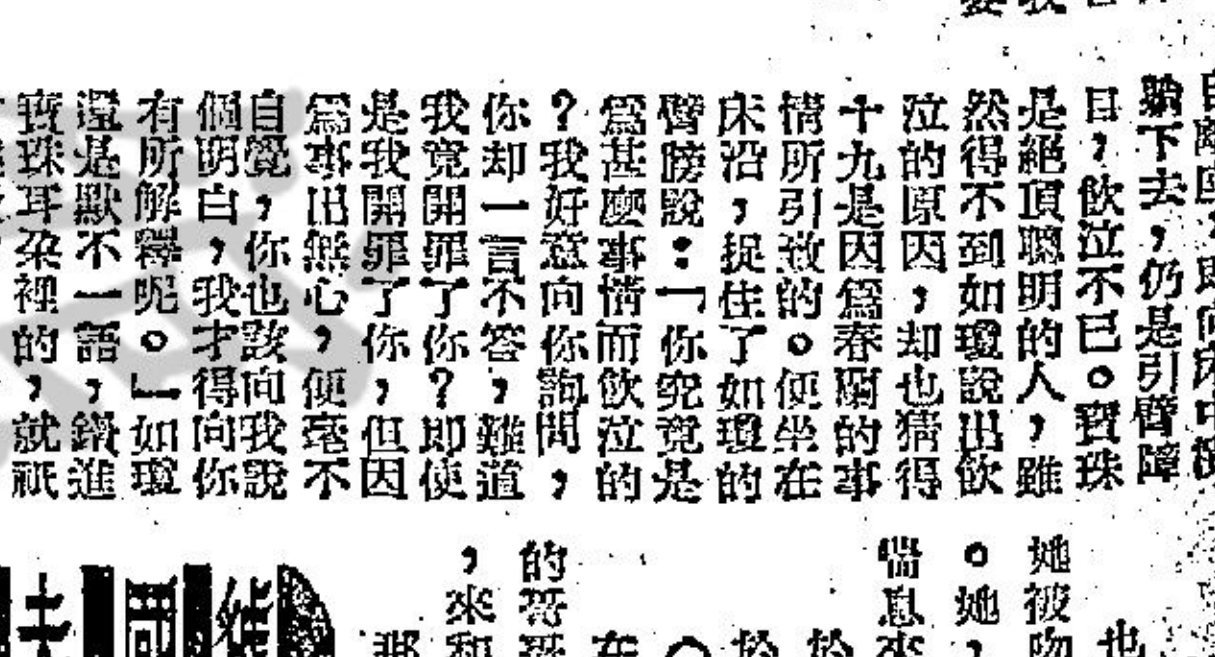 躺下去，仍是引臂障
目，飲泣不已。寶珠
是絕頂聰明的人，雖
然得不到如瓊說出飲
泣的原因，却也猜得
十九是因爲春閨的事
情所引致的。便坐在
床沿，捉住了如瓊的
臂膀說：「你究竟是
爲甚麼事情而飲泣的
？我好意向你詢問，
你却一言不答，難道
我竟開罪了你？即使
是我開罪了你，但因
爲事出無心，便毫不
自覺，你也該向我說
個明白，我才得向你
有所解釋呢。」如瓊
還是默不一語，鑽進
寶珠耳朶裡的，就祇
她被吻
。她，
喘息來
的哥哥
，來和